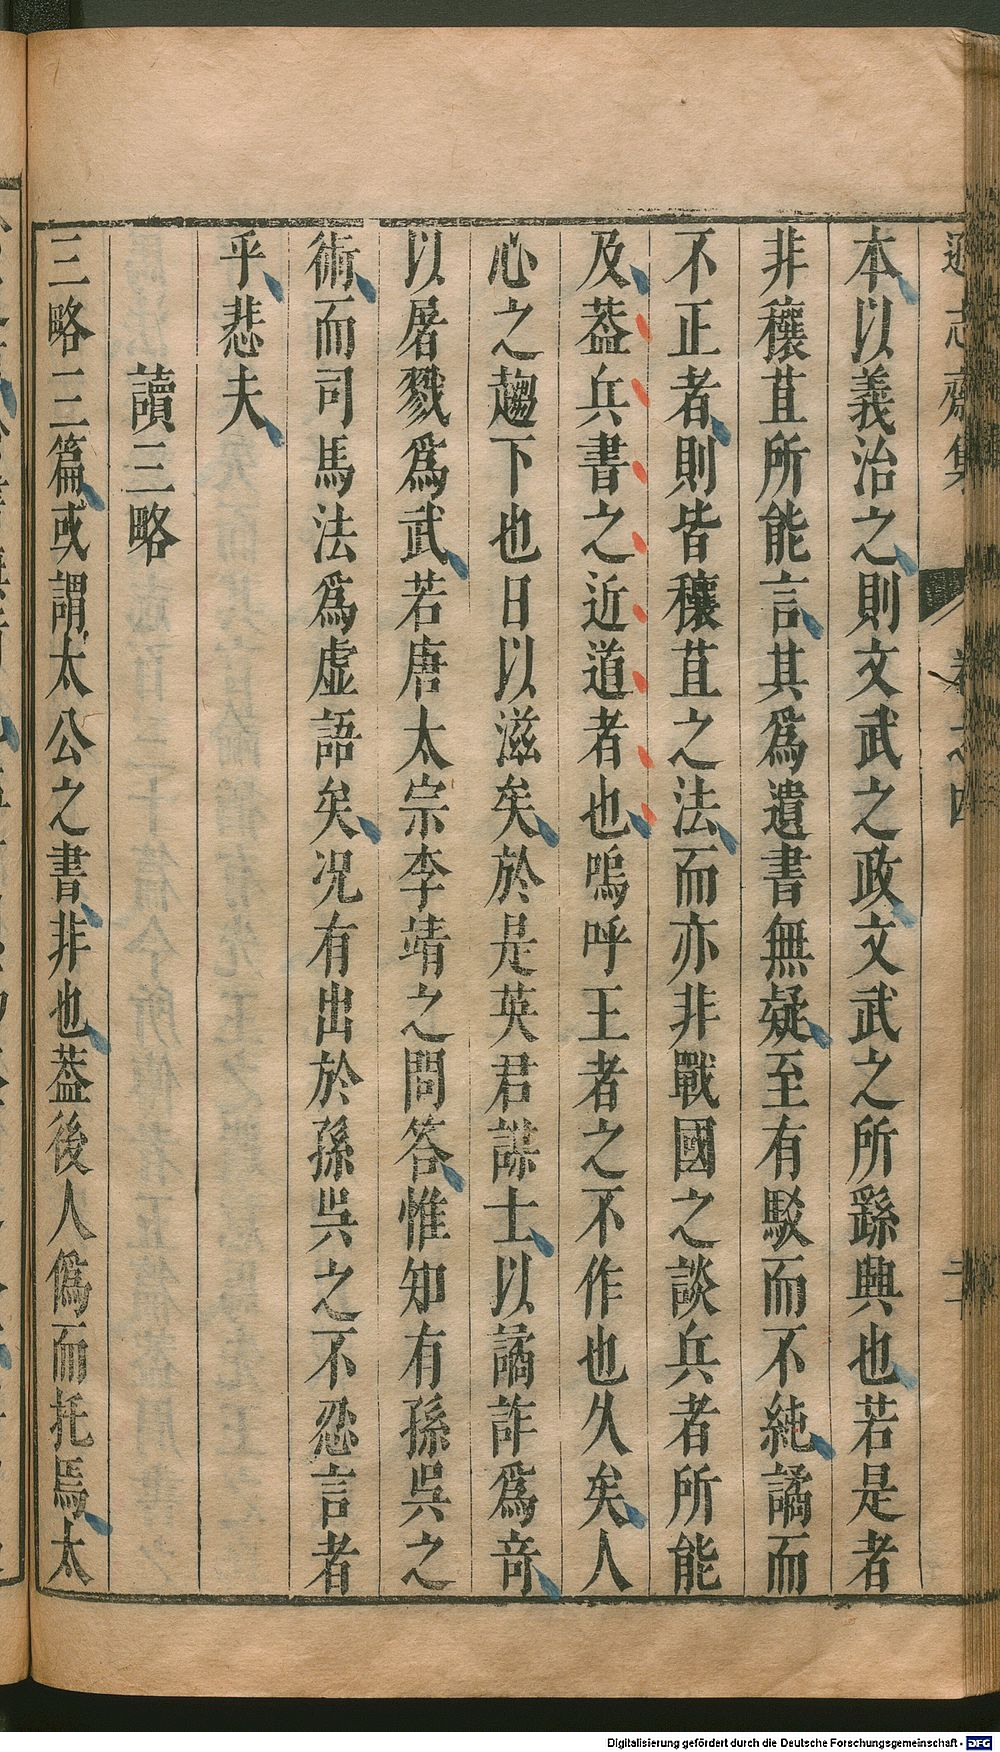 遜志齋集 卷之四
本以義治之則文武之政文武之所繇興也若是者
非穰苴所能言其爲遺書無疑至有駁而不純譎而
不正者則皆穰苴之法而亦非戰國之談兵者所能
及葢兵書之近道者也嗚呼王者之不作也久矣人
心之趨下也日以滋矣於是英君謀士以譎詐爲竒
以屠戮爲武若唐太宗李靖之問答惟知有孫吳之
術而司馬法爲虛語矣况有出於孫吳之不忍言者
乎悲夫
讀三略
三略三篇或謂太公之書非也葢後人僞而托焉太
Digitalisierung gefördert durch die Deutsche Forschungsgemeinschaft - DFG